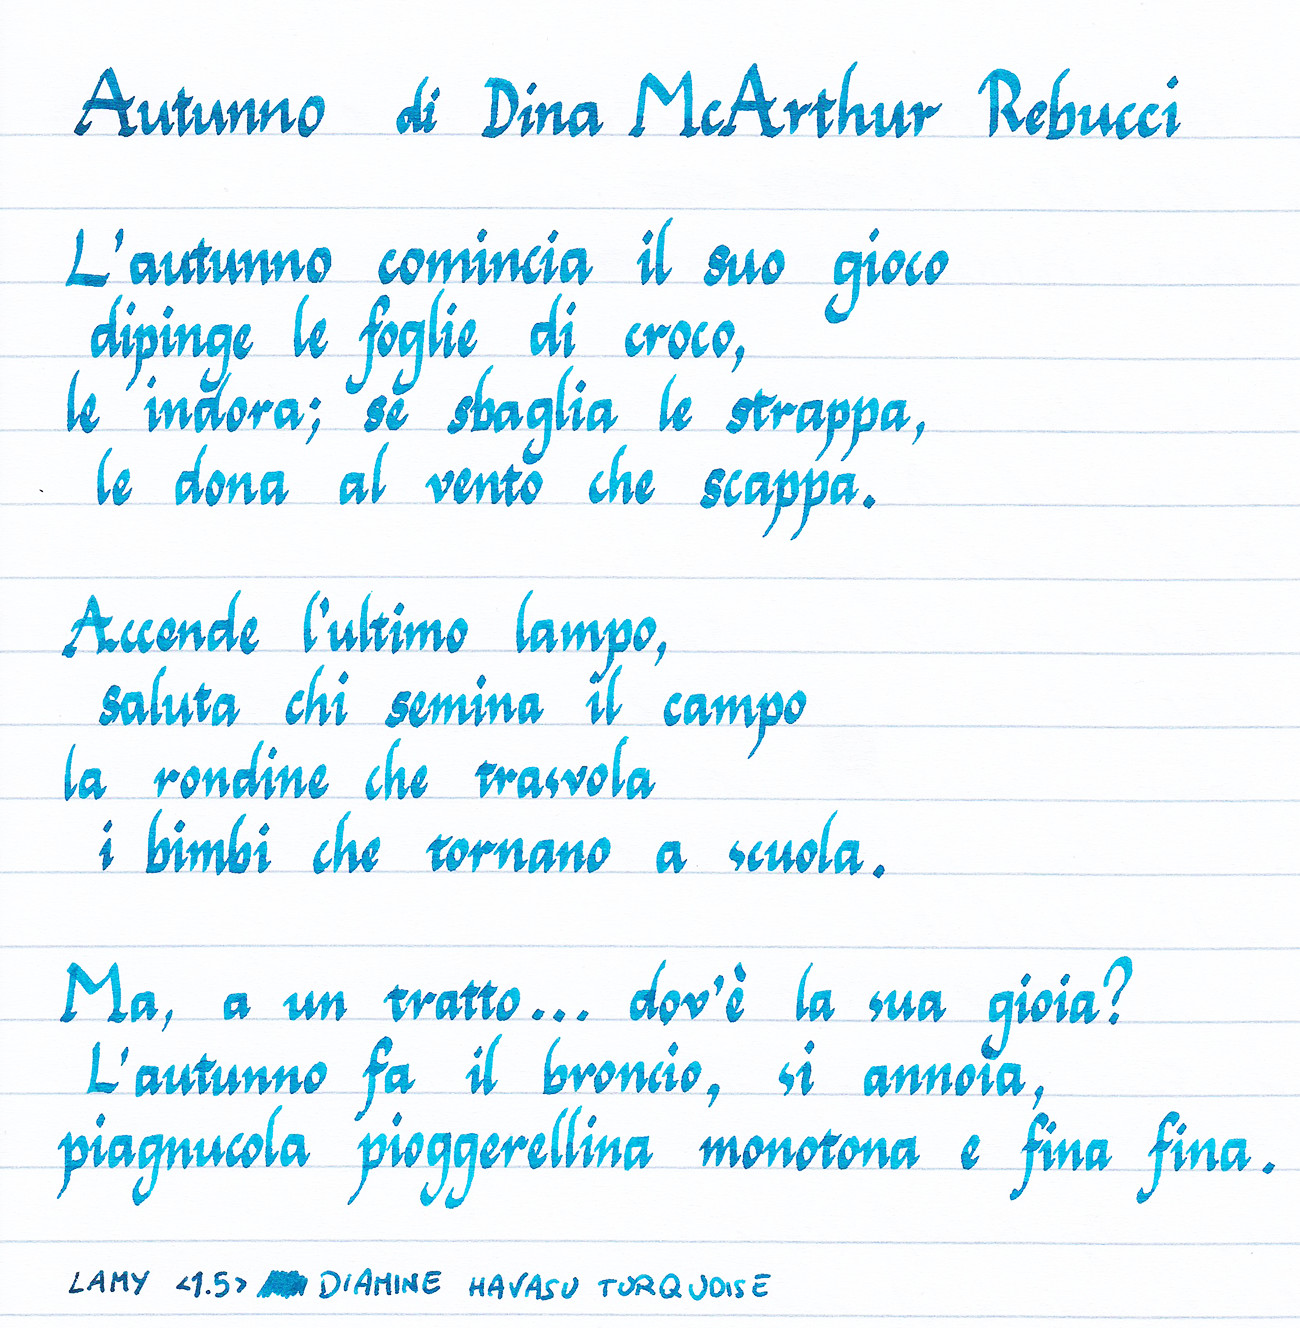 Autunno di Dina McArthur Rebucci
L'autunno comincia il suo gioco
dipinge le foglie di croco,
le indora; se sbaglia le strappa,
le dona al vento che scappa.
Accende l'ultimo lampo,
saluta chi semina il campo
la rondine che trasvola
i bimbi che tornano a scuola.
Ma, a un tratto... dov'è la sua gioia?
L'autunno fa il broncio, si annoia,
piagnucola pioggerellina monotona e fina fina.
LAMY <1.5> DIAMINE HAVASU TURQUOISE